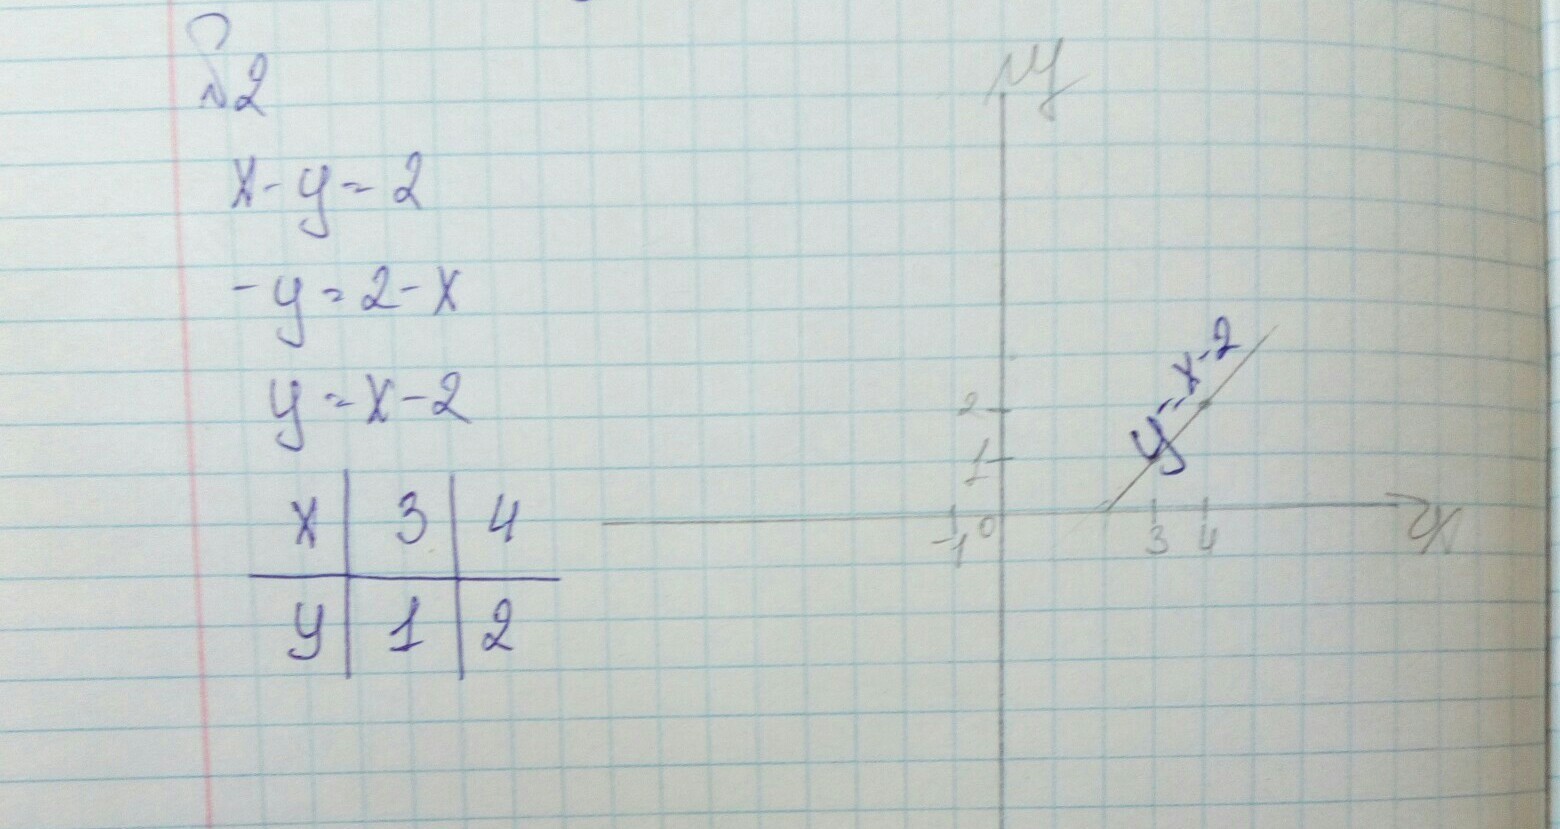 №2
x - y = 2
-y = 2 - x
y = x - 2
x | 3 | 4
y | 1 | 2
y
y = x - 2
2
1
-1 0 3 4 x